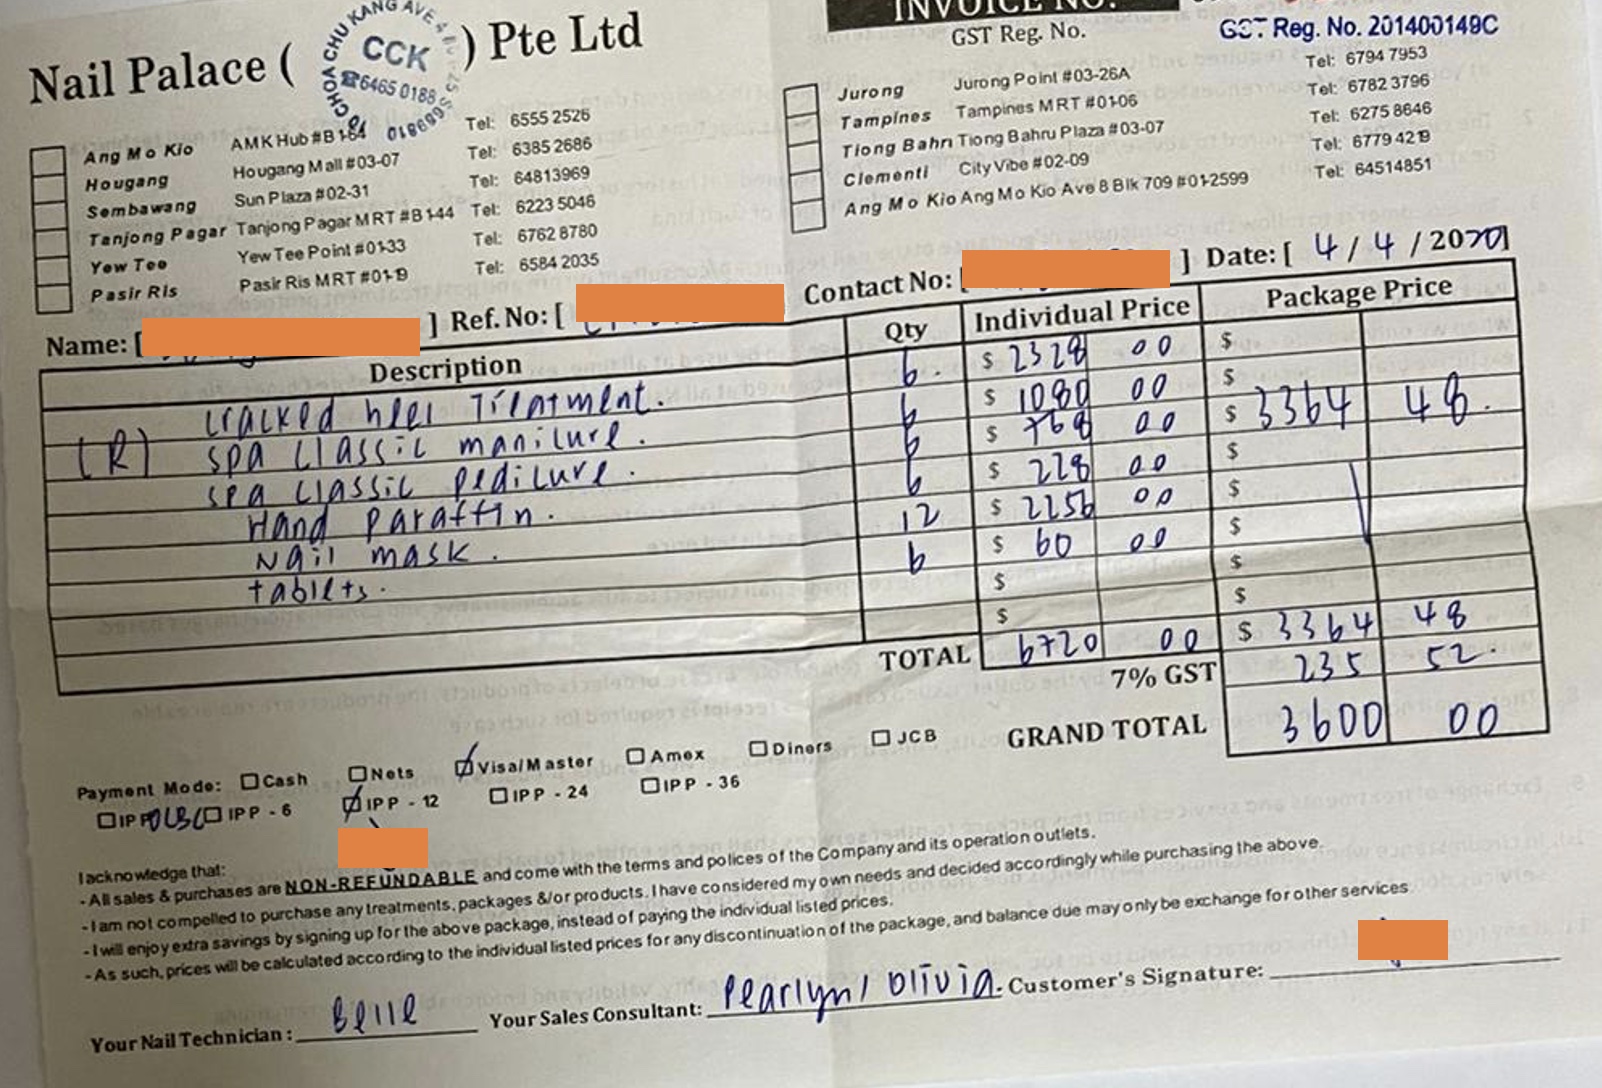 INVOICE NO.
Nail Palace (
CHOA CHU KANG AVE 4
CCK
☎6465 0188
) Pte Ltd
GST Reg. No.
GST Reg. No. 201400149C
Ang Mo Kio AMK Hub #B1-64 Tel: 6555 2526
Hougang Hougang Mall #03-07 Tel: 6385 2686
Sembawang Sun Plaza #02-31 Tel: 64813969
Tanjong Pagar Tanjong Pagar MRT #B1-44 Tel: 6223 5046
Yew Tee Yew Tee Point #01-33 Tel: 6762 8780
Pasir Ris Pasir Ris MRT #01-19 Tel: 6584 2035
Jurong Jurong Point #03-26A Tel: 6794 7953
Tampines Tampines MRT #01-06 Tel: 6782 3796
Tiong Bahru Tiong Bahru Plaza #03-07 Tel: 6275 8646
Clementi City Vibe #02-09 Tel: 6779 4219
Ang Mo Kio Ang Mo Kio Ave 8 Blk 709 #01-2599 Tel: 64514851
Name: [ ] Ref. No: [ Contact No: [ ] Date: [ 4 / 4 / 2020]
Description Qty Individual Price Package Price
cracked heel Treatment. 6. $ 2328 00 $
(R) spa classic manicure. 6 $ 1080 00 $
spa classic pedicure. 6 $ 768 00 $ 3364 48.
Hand paraffin. 6 $ 228 00 $
Nail mask. 12 $ 2256 00 $
tablets. 6 $ 60 00 $
$ $
$ $
TOTAL 6720 00 $ 3364 48
7% GST 235 52.
GRAND TOTAL 3600 00
Payment Mode: Cash Nets Visa/Master Amex Diners JCB
IPP OCBC IPP - 6 IPP - 12 IPP - 24 IPP - 36
I acknowledge that:
- All sales & purchases are NON-REFUNDABLE and come with the terms and polices of the Company and its operation outlets.
- I am not compelled to purchase any treatments, packages &/or products. I have considered my own needs and decided accordingly while purchasing the above.
- I will enjoy extra savings by signing up for the above package, instead of paying the individual listed prices.
- As such, prices will be calculated according to the individual listed prices for any discontinuation of the package, and balance due may only be exchange for other services
Your Nail Technician: Belle Your Sales Consultant: Pearlyn / Olivia. Customer's Signature: